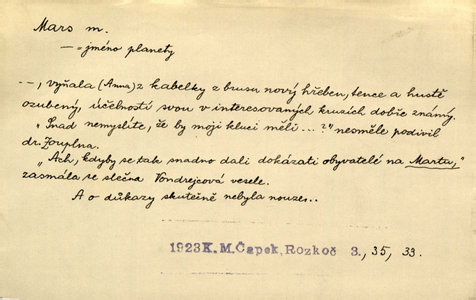 Mars m.
— = jméno planety
— –, vyňala (Anna) z kabelky z brusu nový hřeben, tence a hustě
ozubený, účelností svou v interesovaných kruzích dobře známý.
„Snad nemyslíte, že by moji kluci měli ... ?" nesměle podivil
dr. Zouplna.
„Ach, kdyby se tak snadno dali dokázati obyvatelé na Martu,"
zasmála se slečna Vondrejcová vesele.
A o důkazy skutečně nebyla nouze..
1923 K. M. Čapek, Rozkoč 3., 35, 33.